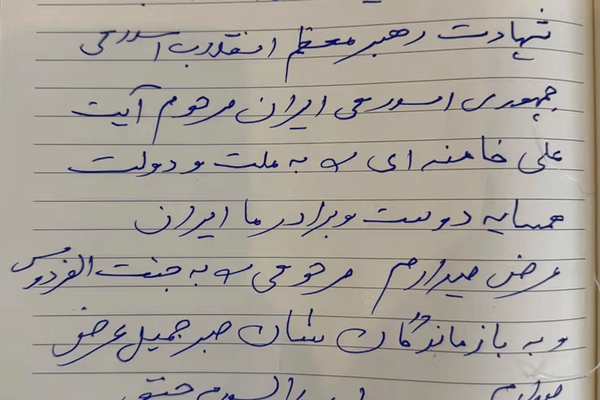 شهادت رهبر معظم انقلاب اسلامی
جمهوری اسلامی ایران مرحوم آیت
علی خامنه ای به ملت و دولت
همسایه دوست و برادر ما ایران
عرض میدارم مرحومی به جنت الفردوس
و به بازماندگان شان صبر جمیل عرض
میدارم